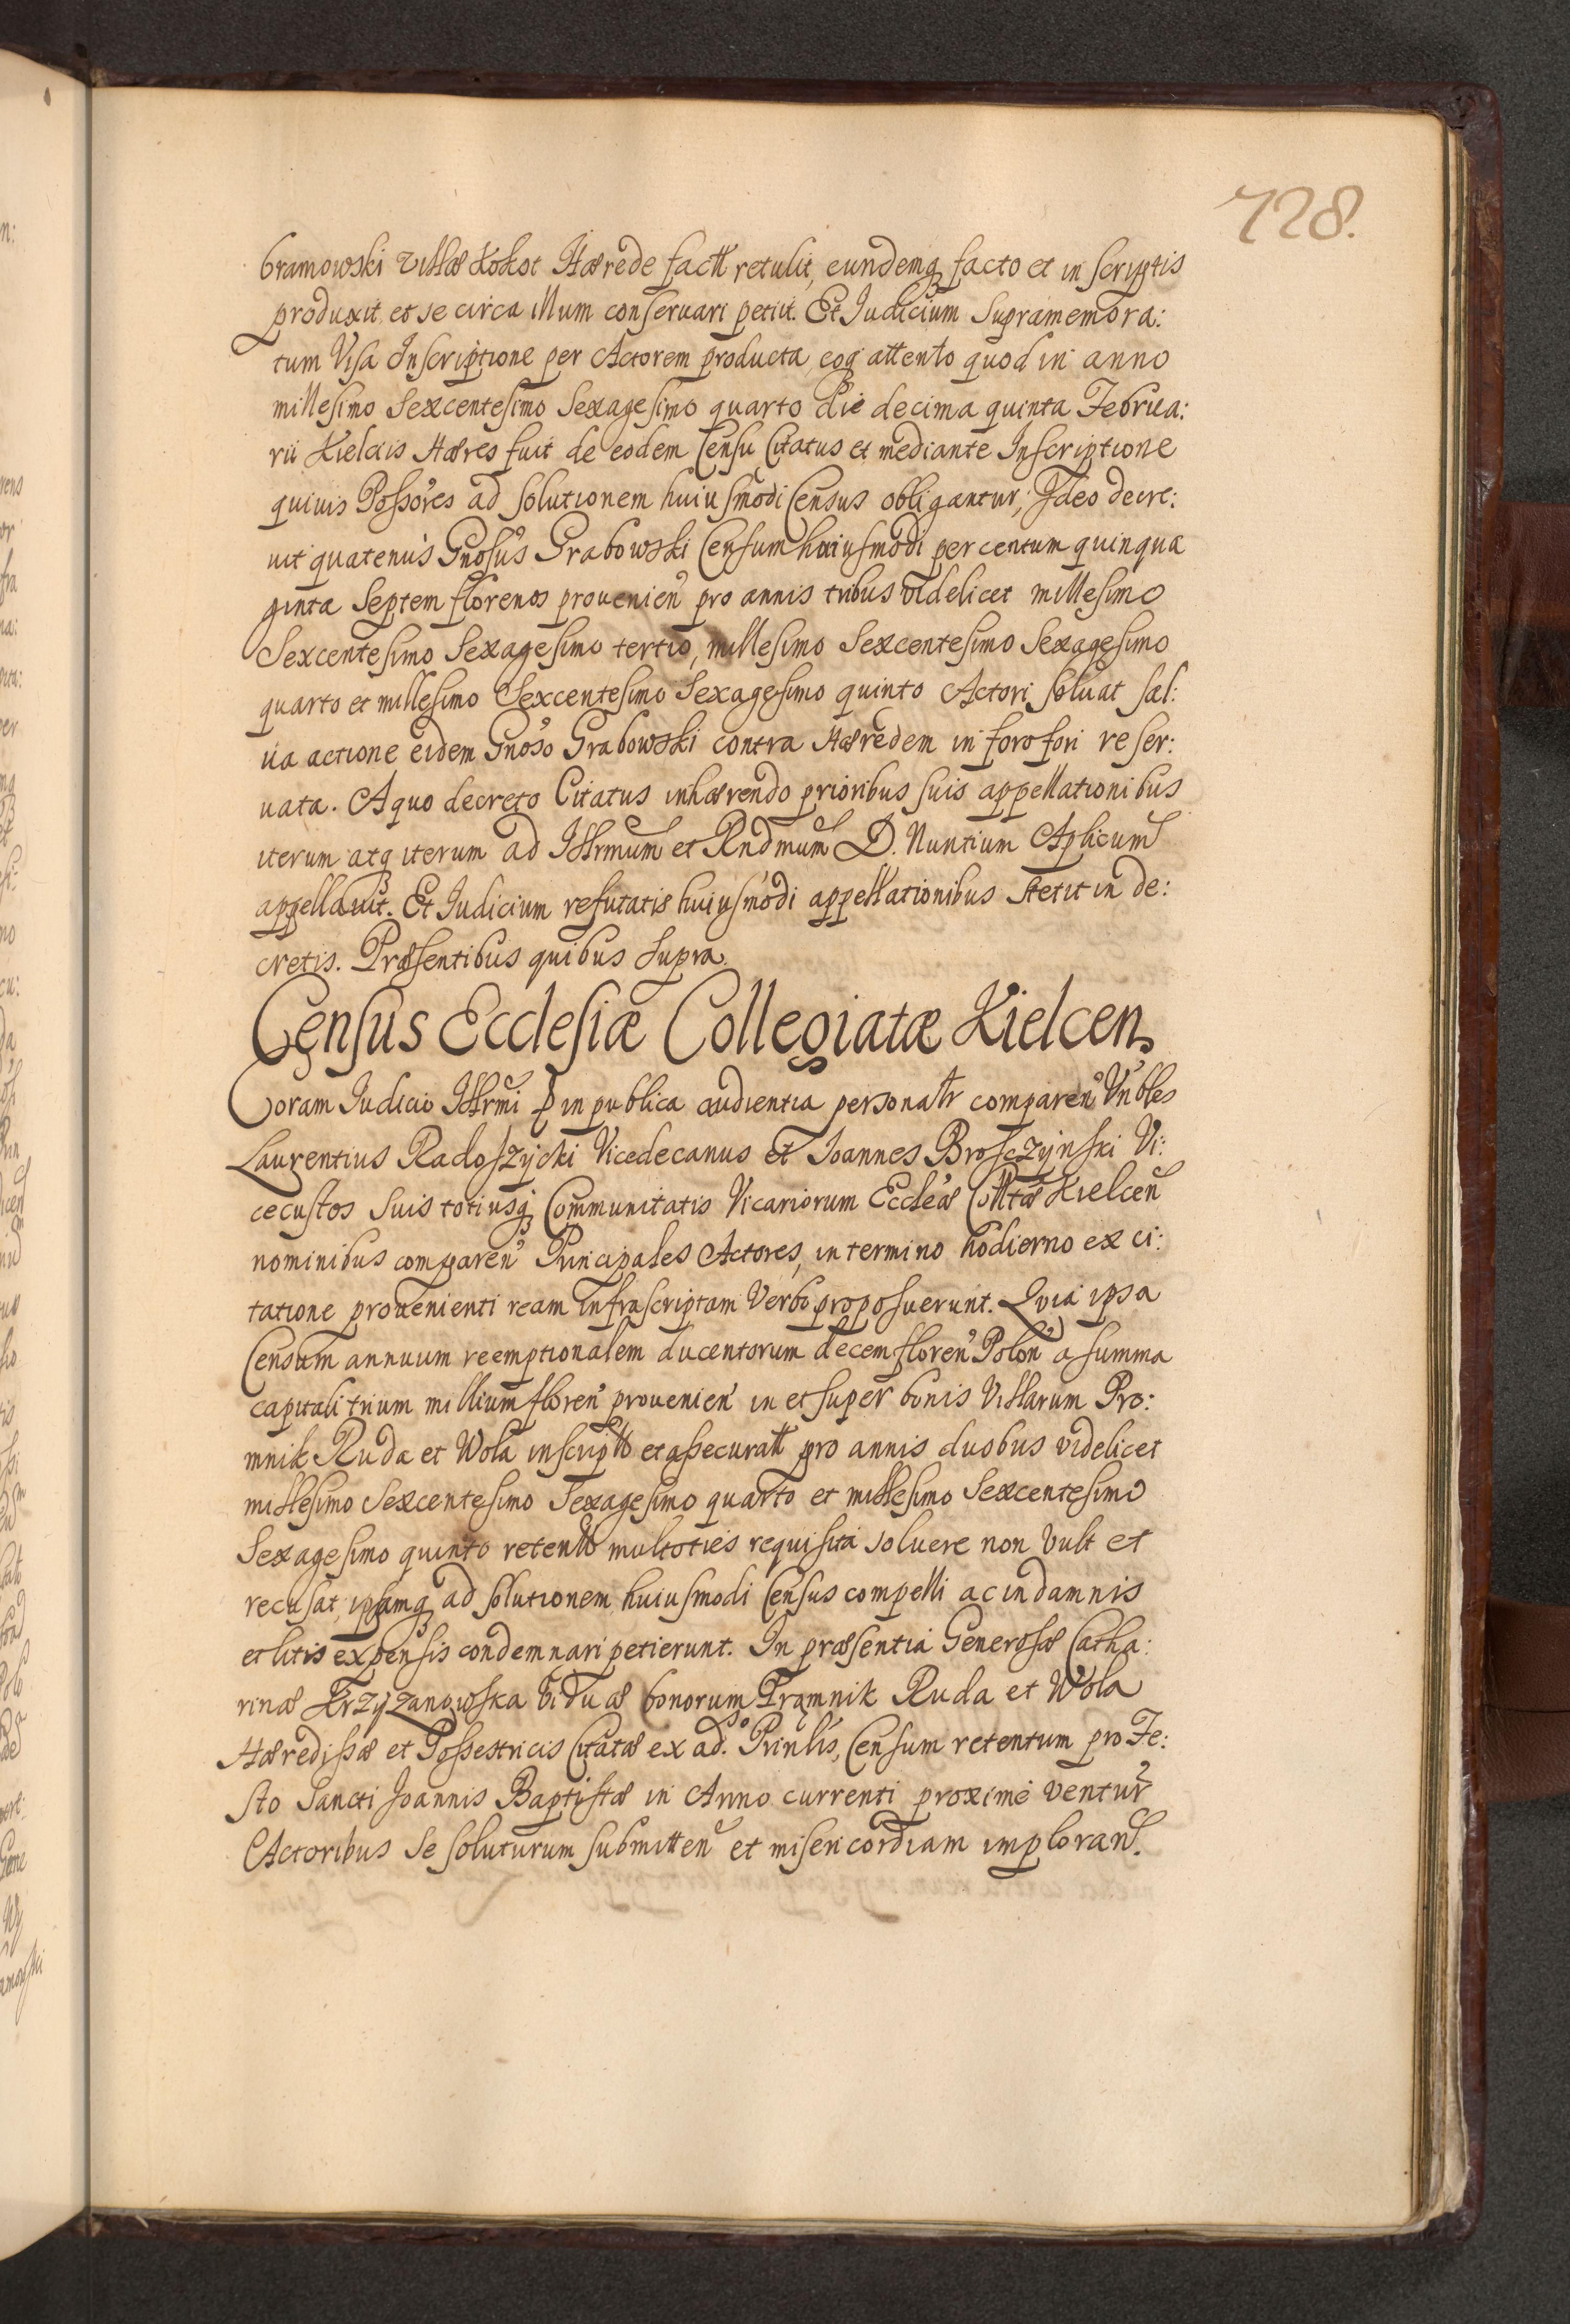 728.
bramowski villæ Kokot Hærede factt retulit, eundemq facto et in scriptis
produxit et se circa illum conseruari petiit. Et Iudicium supramemora:
tum Visa Inscriptione per Actorem producta eoq attento quod in anno
millesimo Sexcentesimo Sexagesimo quarto die decima quinta Februa:
rii Kielciis Hæres fuit de eodem Censu Citatus et mediante Inscriptione
quiuis Possores ad solutionem huiusmodi Census obligantur; Ideo decre:
uit quatenus Gnosus Grabowski Censum huiusmodi per centum quinqua
ginta Septem florenos prouenien pro annis tribus videlicet millesimo
Sexcentesimo Sexagesimo tertio, millesimo Sexcentesimo Sexagesimo
quarto et millesimo Sexcentesimo Sexagesimo quinto Actori soluat sal:
ua actione eidem Gnoso Grabowski contra Hæredem in foro fori reser:
uata. A quo decreto Citatus inhærendo prioribus suis appellationibus
iterum atq iterum ad Illrmum et Rndmum D. Nuntium Aplicum
appellauit. Et Iudicium refutatis huiusmodi appellationibus stetit in de:
cretis. Præsentibus quibus supra.
Census Ecclesiæ Collegiatæ Kielcen
Coram Iudicio Illrmi in publica audientia personalr comparen Vnbles
Laurentius Radoszycki Vicedecanus et Ioannes Brosczynski Vi:
cecustos suis totiusq Communitatis Vicariorum Eccleæ Collltæ Kielcen
nominibus comparen Principales Actores, in termino hodierno ex ci:
tatione prouenienti ream infrascriptam Verbo proposuerunt. Quia ipsa
Censum annuum reemptionalem ducentorum decem floren Polon a summa
capitali trium millium floren prouenien in et super bonis Villarum Pro:
mnik Ruda et Wola inscriptt et assecuratt pro annis duobus videlicet
millesimo Sexcentesimo Sexagesimo quarto et millesimo Sexcentesimo
Sexagesimo quinto retentt multoties requisita soluere non vult et
recusat, ipsamq ad solutionem huiusmodi Census compelli ac in damnis
et litis expensis condemnari petierunt. In præsentia Generosæ Catha:
rinæ Krzyzanowska viduæ bonorum Promnik Ruda et Wola
Hæredissæ et Possestricis Citatæ ex ad. Prinlis, Censum retentum pro Fe:
sto Sancti Ioannis Baptistæ in Anno currenti proxime ventur
Actoribus se soluturum submitten et misericordiam imploran.